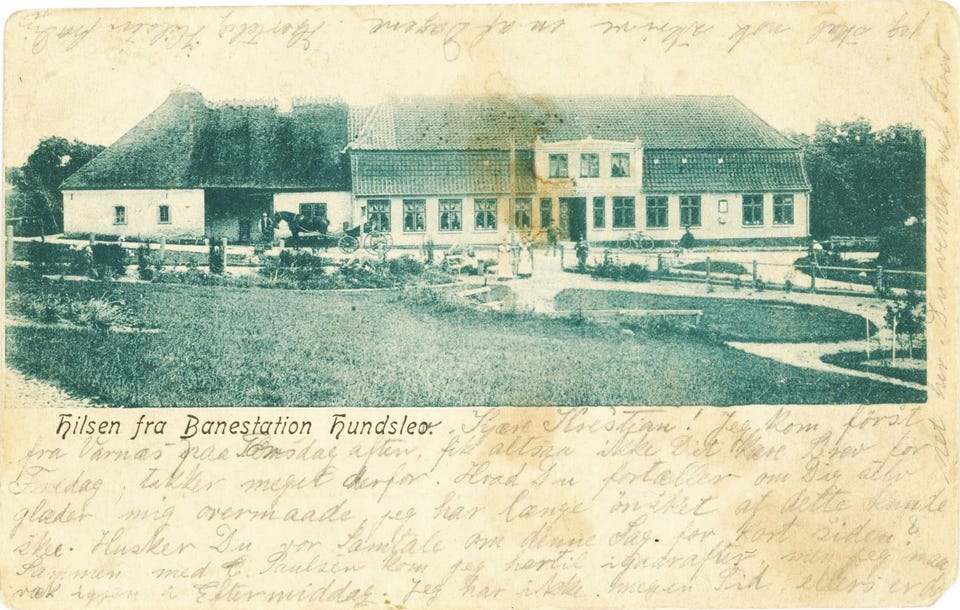 Hilsen fra Banestation Hundslev.
Kjære Krestjan! Jeg kom først
fra Varnæs paa Torsdag aften, fik altsaa ikke Dit kære Brev før
Fredag, takker meget derfor. Hvad Du fortæller om Dig selv
glæder mig overmaade, jeg har længe ønsket at dette kunde
ske. Husker Du vor Samtale om denne Sag for kort siden?
Sammen med E. Paulsen kom jeg hertil igaaraftes, men jeg maa
væk igjen i Eftermiddag. Jeg har ikke megen Tid, ellers
Du venter vel Brev
jeg skal nok skrive en af Dagene
Hjertelig Hilsen fra